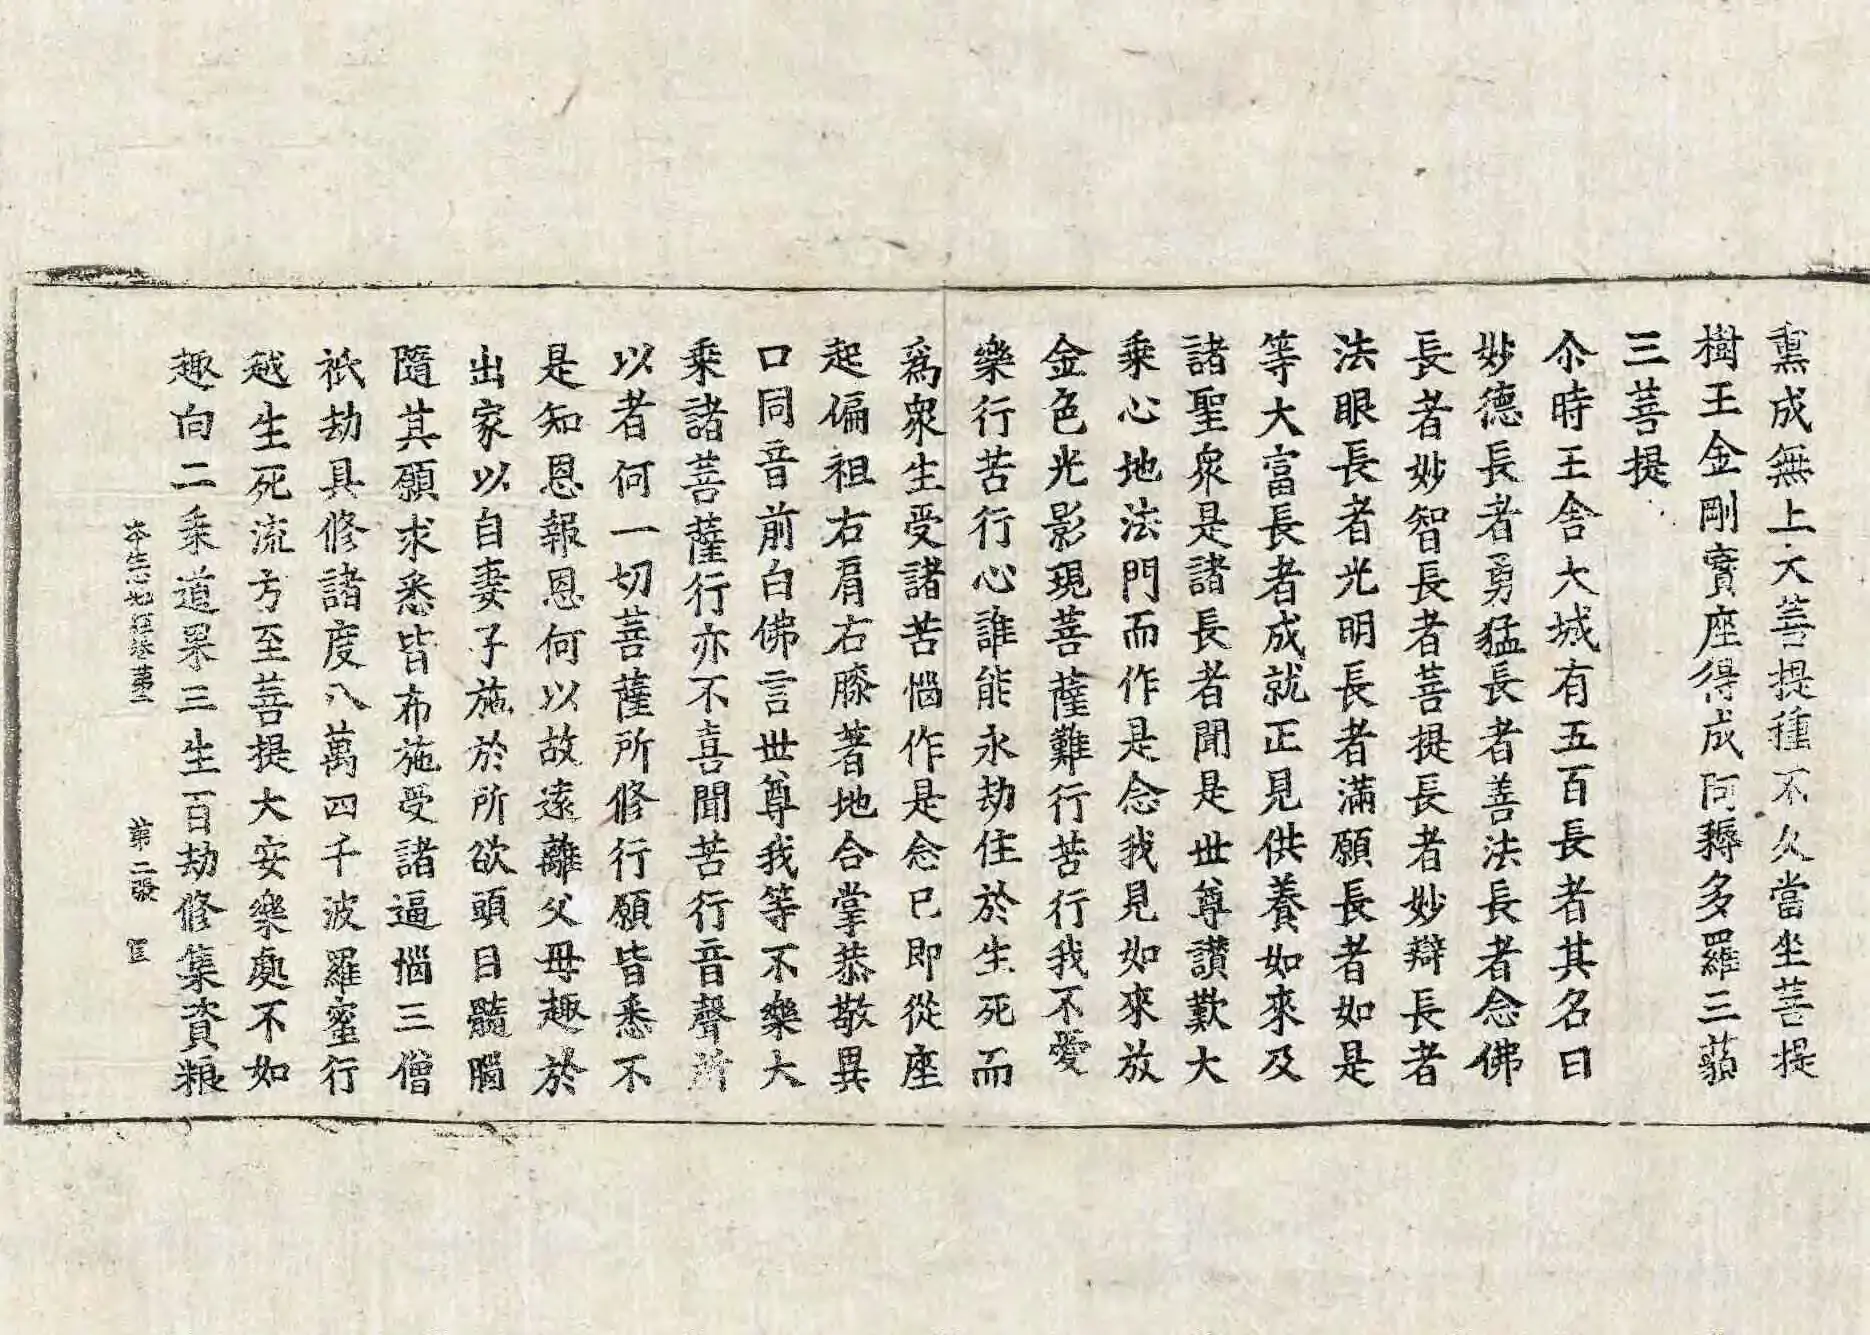 熏成無上大菩提種不久當坐菩提
樹王金剛寶座得成阿耨多羅三藐
三菩提
尒時王舍大城有五百長者其名曰
妙德長者勇猛長者善法長者念佛
長者妙智長者菩提長者妙辯長者
法眼長者光明長者滿願長者如是
等大富長者成就正見供養如來及
諸聖衆是諸長者聞是世尊讃歎大
乘心地法門而作是念我見如來放
金色光影現菩薩難行苦行我不愛
樂行苦行心誰能永劫住於生死而
爲衆生受諸苦惱作是念已即從座
起偏袒右肩右膝著地合掌恭敬異
口同音前白佛言世尊我等不樂大
乘諸菩薩行亦不喜聞苦行音聲所
以者何一切菩薩所修行願皆悉不
是知恩報恩何以故遠離父母趣於
出家以自妻子施於所欲頭目髓腦
隨其願求悉皆布施受諸逼惱三僧
祇劫具修諸度八萬四千波羅蜜行
越生死流方至菩提大安樂處不如
趣向二乘道果三生百劫修集資粮
夲生心地經卷第三 第二張 匡